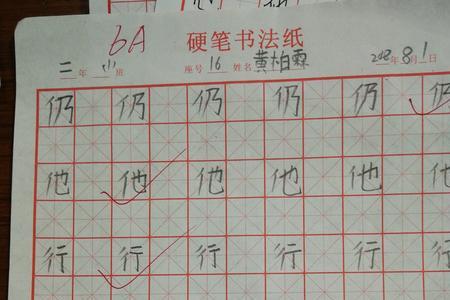 6A 硬笔书法纸
二年班 座号16 姓名黄柏霖 年8月1日
仍仍仍仍仍仍
他他他他他他
行行行行行行